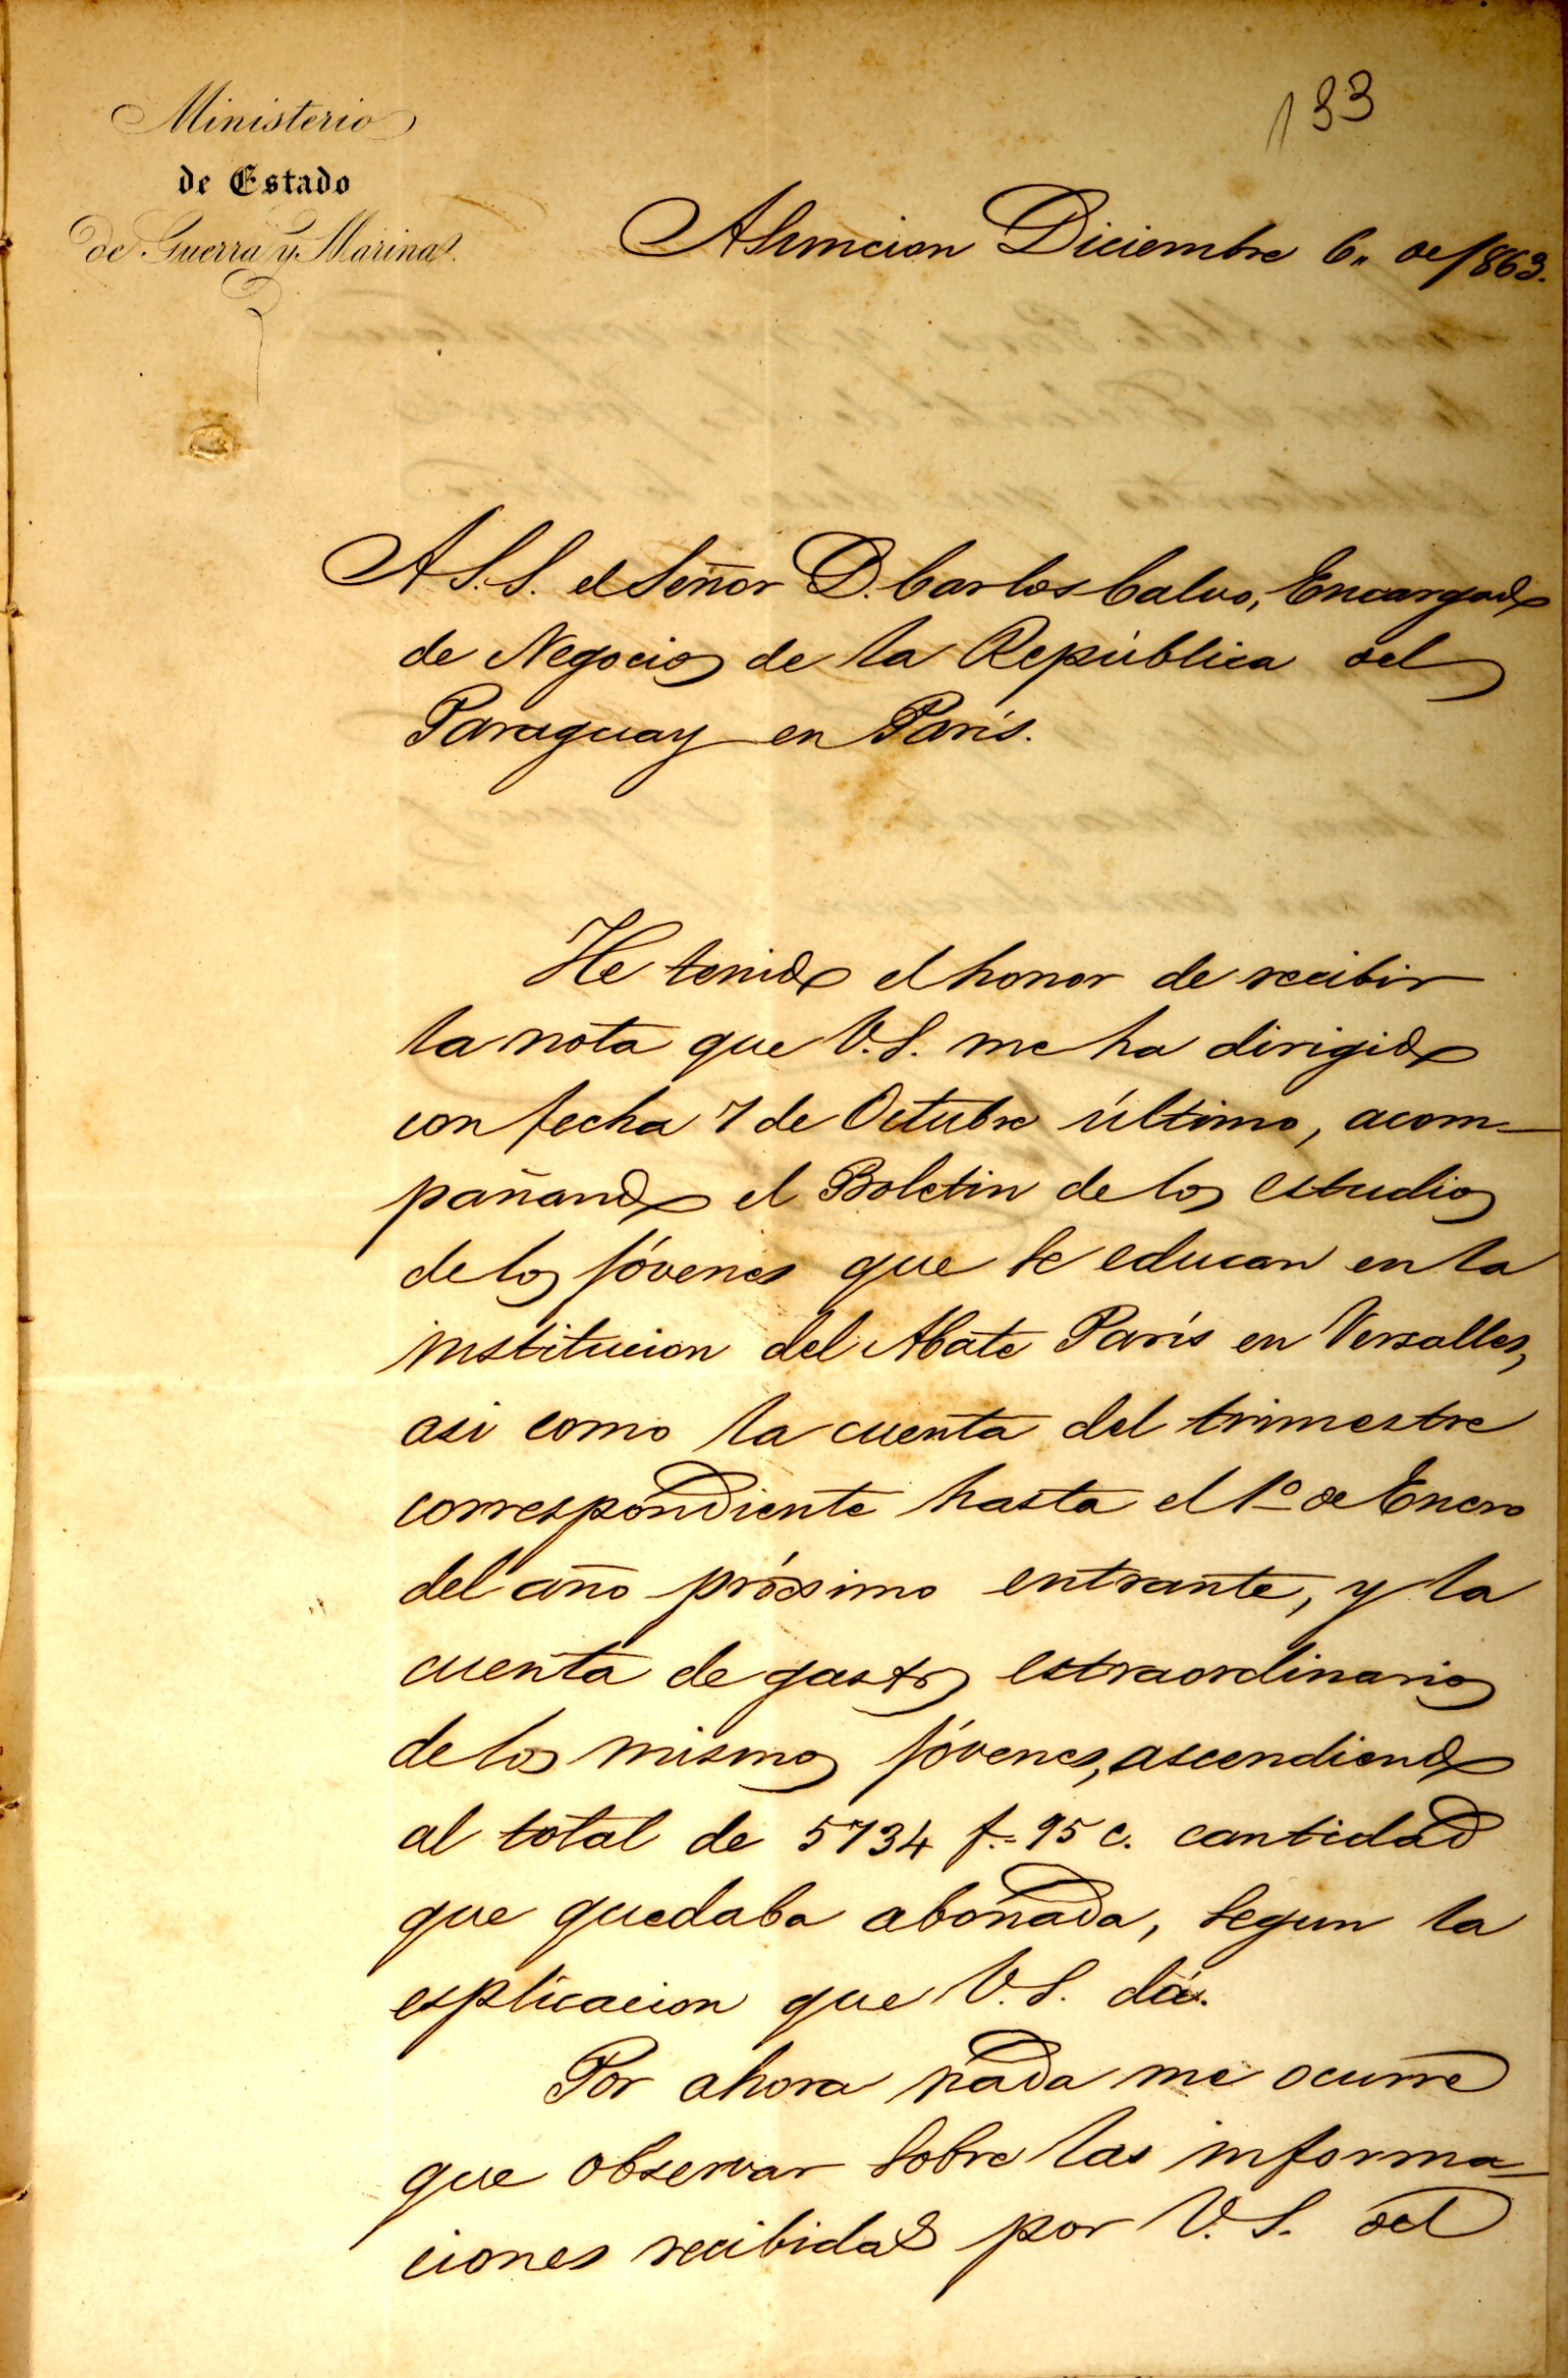 133
Ministerio
de Estado
de Guerra y Marina.
Asuncion Diciembre 6,, de 1863.
A S.S. el Señor D. Carlos Calvo, Encargado
de Negocios de la República del
Paraguay en París.
He tenido el honor de recibir
la nota que V.S. me ha dirigido
con fecha 7 de Octubre último, acom-
pañando el Boletin de los estudios
de los jóvenes que se educan en la
institucion del Abate París en Versalles,
asi como la cuenta del trimestre
correspondiente hasta el 1º de Enero
del año próximo entrante, y la
cuenta de gastos estraordinarios
de los mismos jóvenes, ascendiendo
al total de 5734 f.= 95 c. cantidad
que quedaba abonada, segun la
esplicacion que V.S. dá.
Por ahora nada me ocurre
que observar sobre las informa-
ciones recibidas por V.S. del